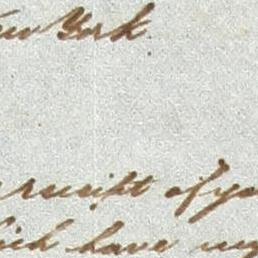 New York
receipt of yo
hich have my